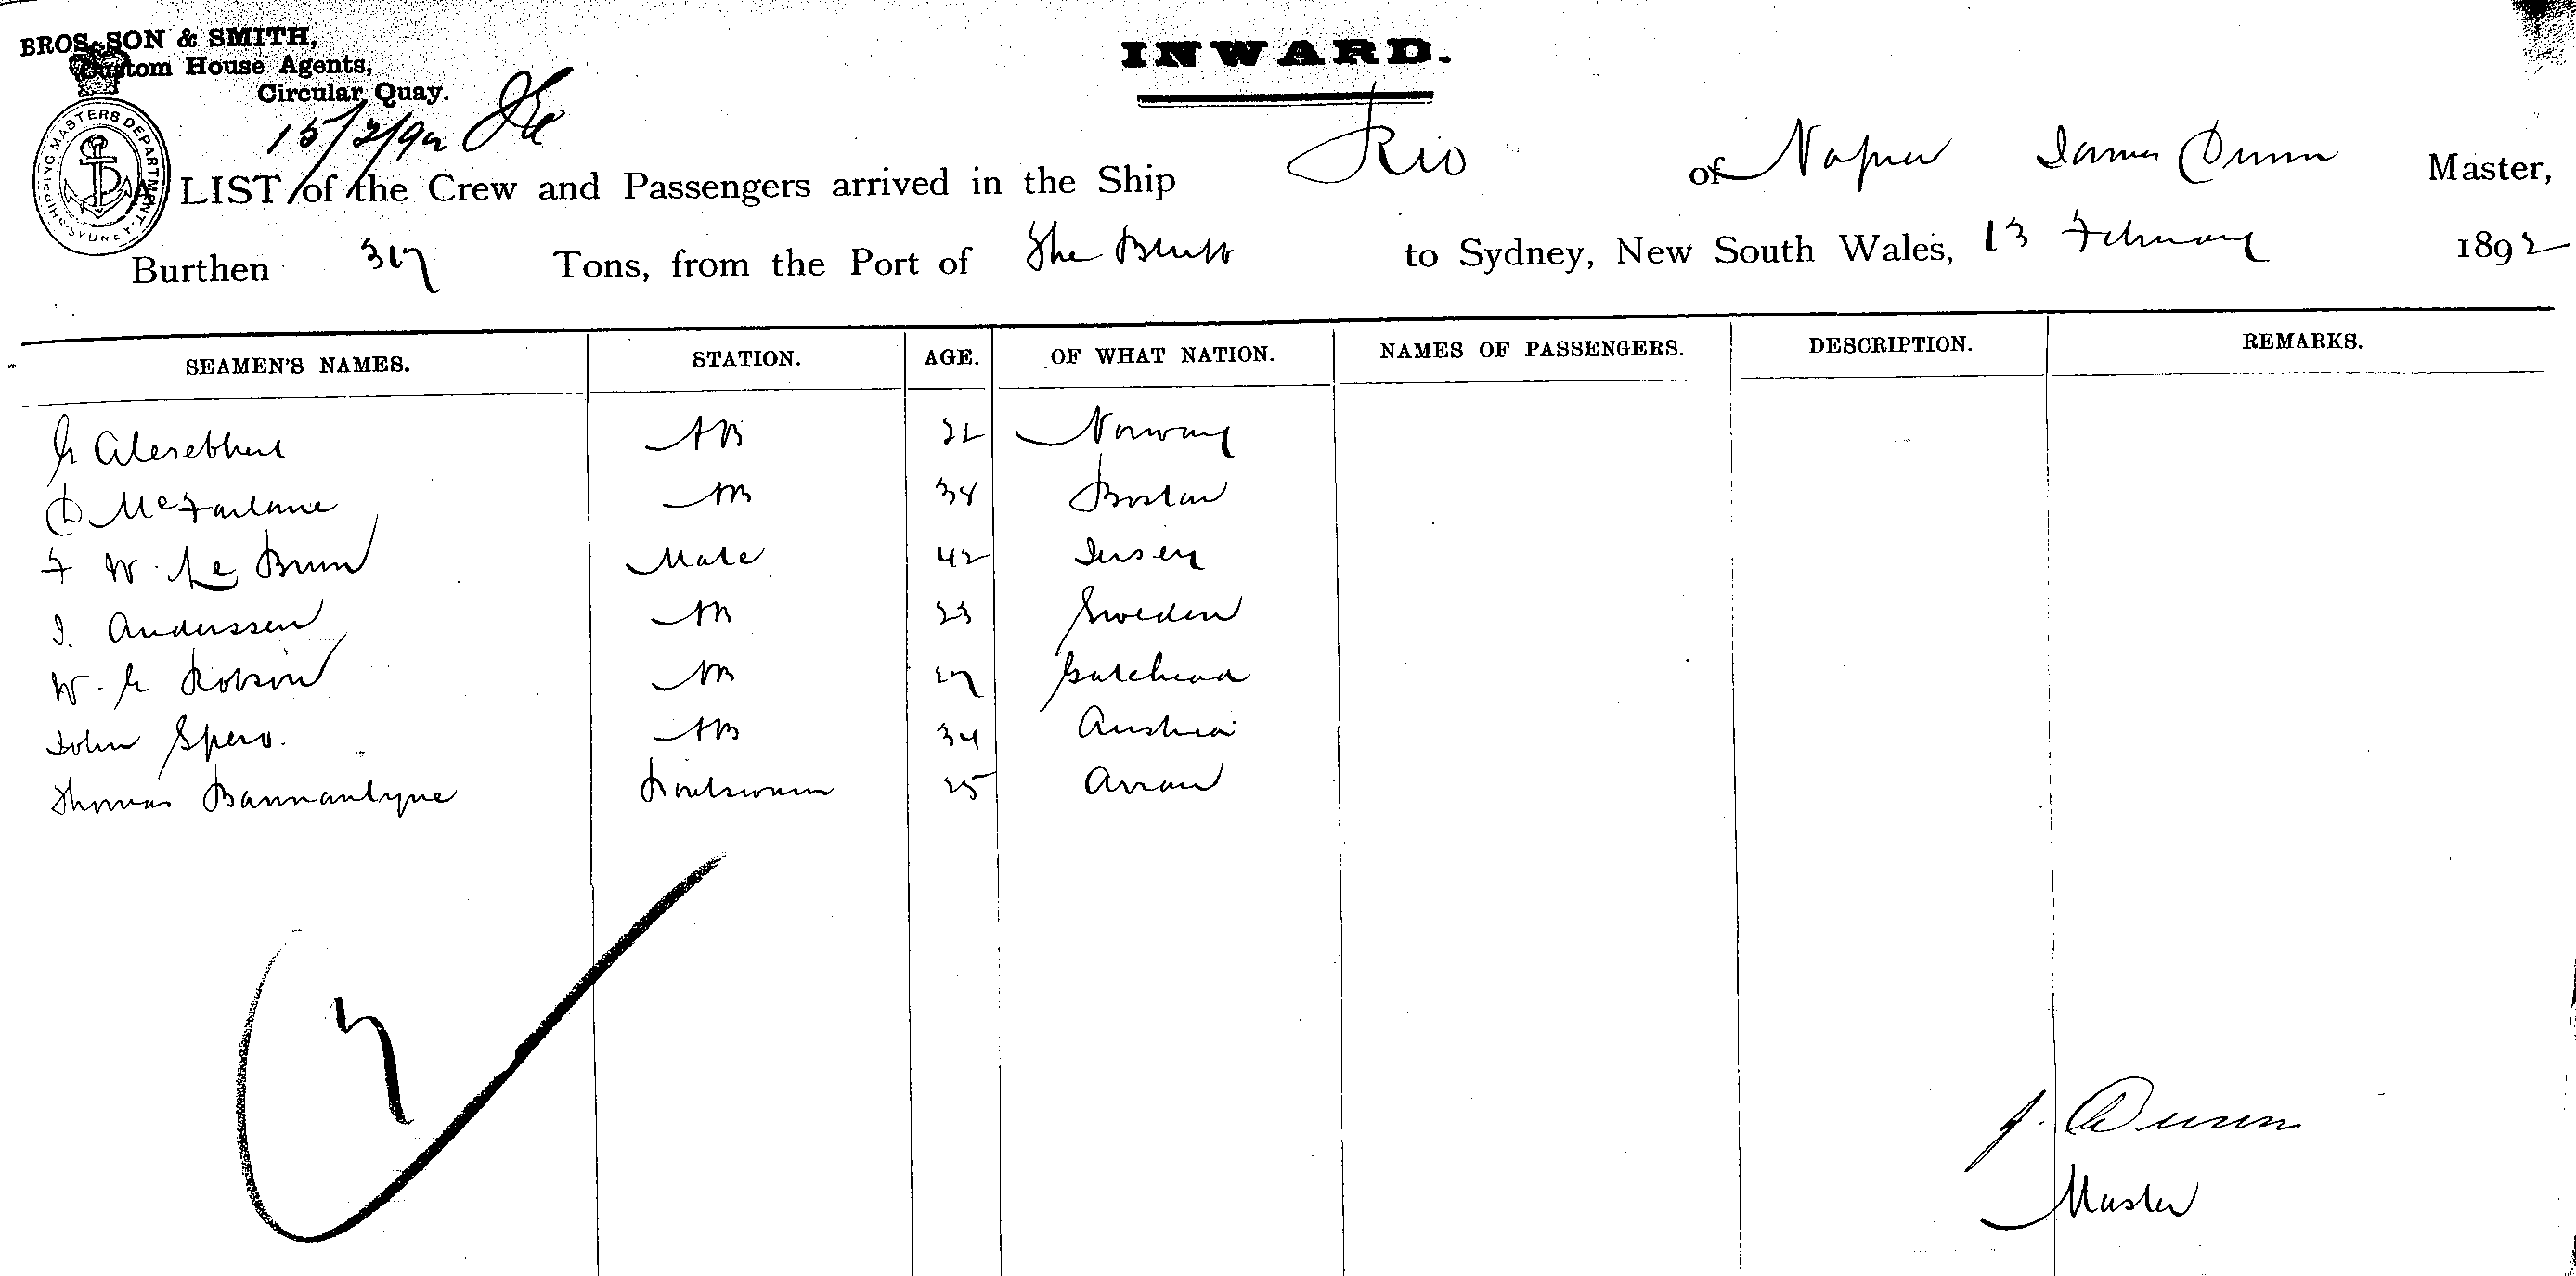 BROS. SON & SMITH,
Custom House Agents,
Circular Quay.
INWARD.
SHIPPING MASTERS DEPARTMENT. SYDNEY.
15/2/92
A LIST of the Crew and Passengers arrived in the Ship Rio of Napier James Dunn Master,
Burthen 317 Tons, from the Port of The Bluff to Sydney, New South Wales, 13 February 1892
SEAMEN'S NAMES. STATION. AGE. OF WHAT NATION. NAMES OF PASSENGERS. DESCRIPTION. REMARKS.
AB 22 Norway
D McFarlane AB 38 Boston
F W. Le Brun Mate 42 Jersey
J. Anderssen AB 23 Sweden
W. G Robson AB 27 Gateshead
John Spero. AB 34 Austria
Thomas Bannantyne Boatswain 25 Arran
7
J. Dunn
Master